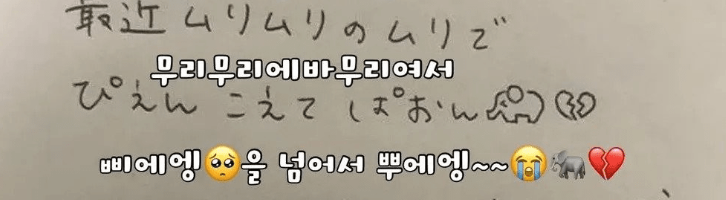 最近ムリムリのムリで
무리무리에바무리여서
ぴえん こえて ぱおん
삐에엥🥺을 넘어서 뿌에엥~~😭🐘💔